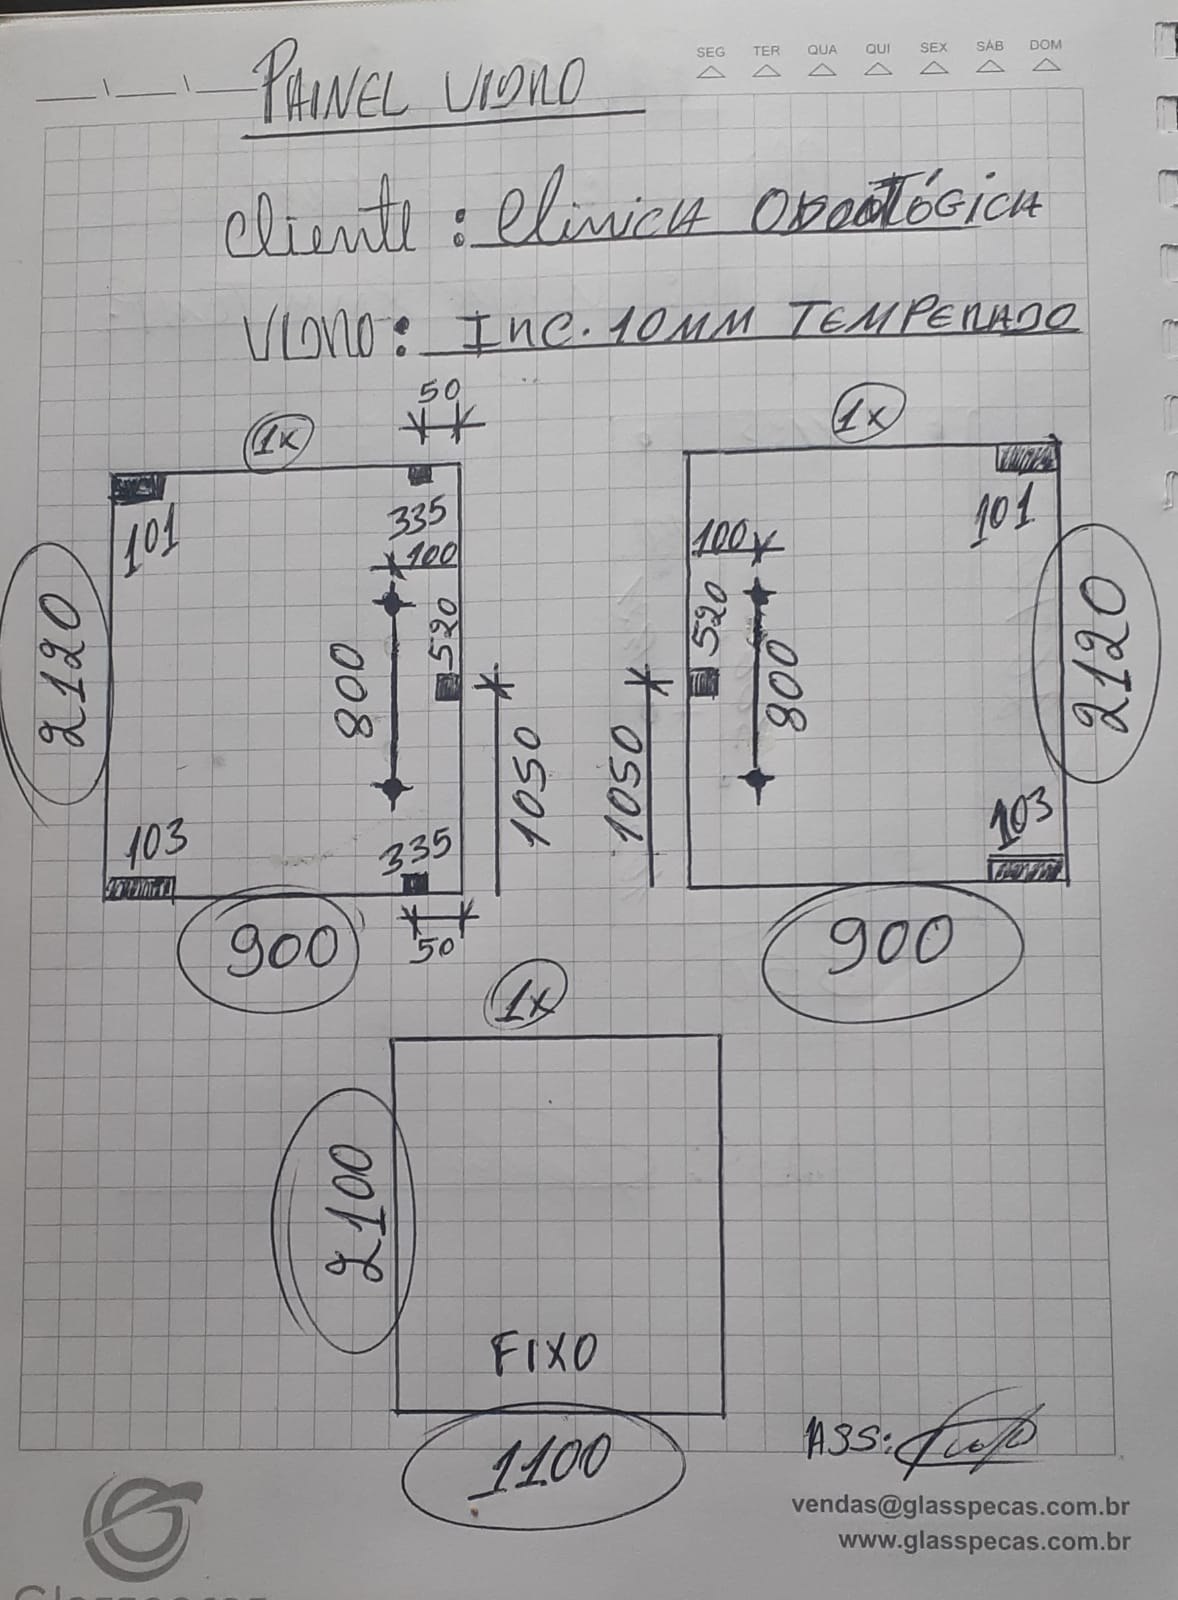 SEG TER QUA QUI SEX SÁB DOM
PAINEL VIDRO
Cliente: Clinica ODOOTÓGICA
VIDRO: INC. 10MM TEMPERADO
50
1x
1x
101
335
100
100
101
2120
800
520
520
800
2120
1050
1050
103
335
103
900
50
900
1x
2100
FIXO
1100
ASS:
vendas@glasspecas.com.br
www.glasspecas.com.br